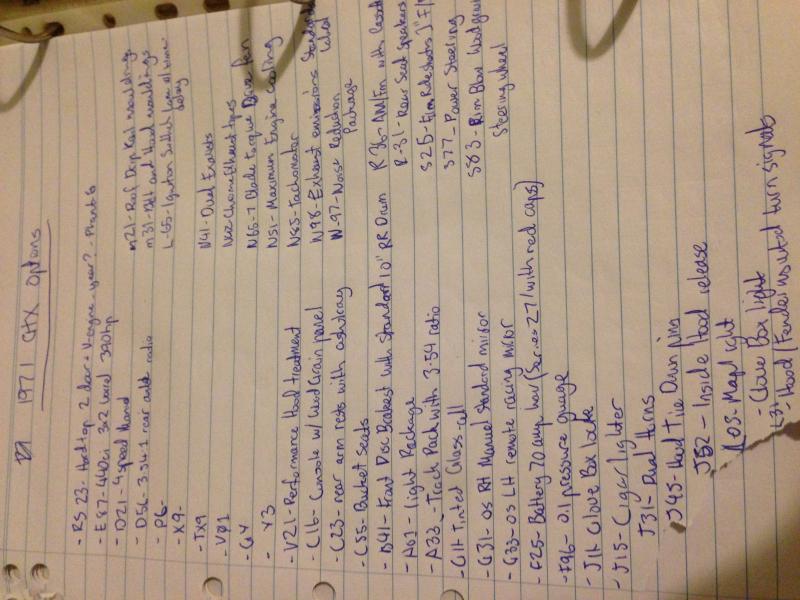 1971 GTX Options
- RS 23- Hardtop 2 door + V-engine-year? - Plant 6
- E87-440ci 3x2 barrel 390hp
- D21-4 speed
- D56-3.54-1 rear axle radio
- P6-
- X9-
- TX9
- V01
- G4
- Y3
- V21-Performance Hood treatment
- C16- Console w/ Wood Grain panel
- C23- rear arm rests with ashtray
- C55- Bucket Seats
- B41- Front Disc Brakes with standard 10" RR Drum
- A01- light Package
- A33-Track Pack with 3.54 ratio
- G11 Tinted Glass-all
- G31- OS RH Manual Standard mirror
- G33- OS LH remote racing mirror
- F25- Battery 70 amp hour (Series 27/with red caps)
- F96- Oil pressure guage
- J11 Glove Box locks
- J15-Cigar lighter
J31- Dual Horns
J45-Hood Tie Down Pins
J52 - Inside Hood release
L05- Map light
- Glove Box light
L31- Hood/Fender mounted turn signals
M21-Roof Drip Rail mouldings
M31-Belt and Hood mouldings
L-65-Ignition Switch light w/time delay
N41- Dual Exhausts
N42-Chrome Exhaust tipes
N65-7 Blade torque Drive fan
N51- Maximum Engine Cooling
N85-Tachometer
N98- Exhaust emissions Standard Control
N-97-Noise Reduction Package
R 36- AM/Fm with
R-31-Rear Seat Speakers
S25-
S77-Power Steering
S83-Rim Blow Woodgrain Steering wheel